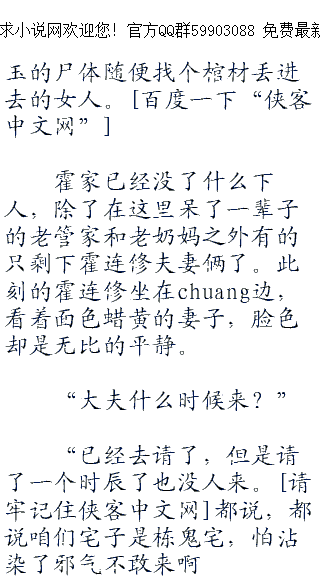 求小说网欢迎您！官方QQ群59903088 免费最新
玉的尸体随便找个棺材丢进
去的女人。[百度一下“侠客
中文网”]
霍家已经没了什么下
人，除了在这里呆了一辈子
的老管家和老奶妈之外有的
只剩下霍连修夫妻俩了。此
刻的霍连修坐在chuang边，
看着面色蜡黄的妻子，脸色
却是无比的平静。
“大夫什么时候来？”
“已经去请了，但是请
了一个时辰了也没人来。[请
牢记住侠客中文网]都说，都
说咱们宅子是栋鬼宅，怕沾
染了邪气不敢来啊